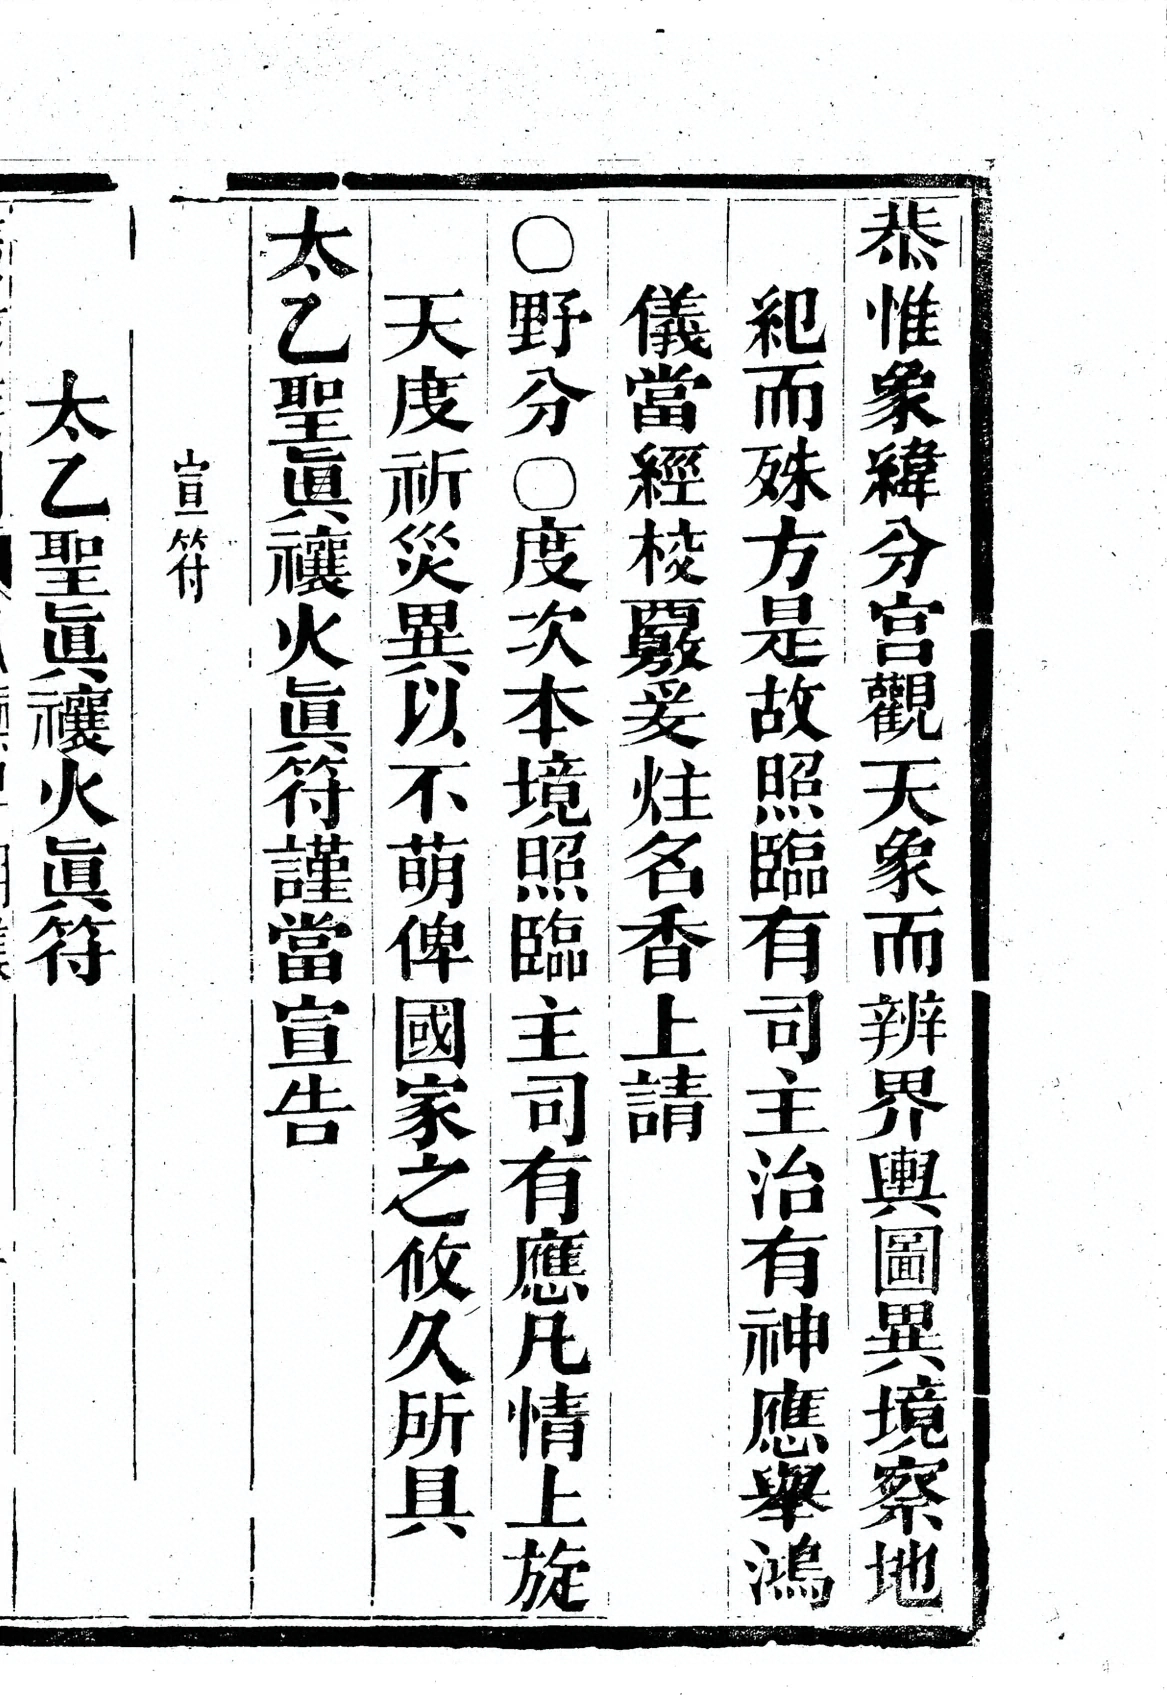 恭惟象緯分宫觀天象而辨界輿圖異境察地
紀而殊方是故照臨有司主治有神應舉鴻
儀當經校覈爰炷名香上請
○野分○度次本境照臨主司有應凡情上旋
天度祈災異以不萌俾國家之攸久所具
太乙聖眞禳火眞符謹當宣告
宣符
太乙聖眞禳火眞符